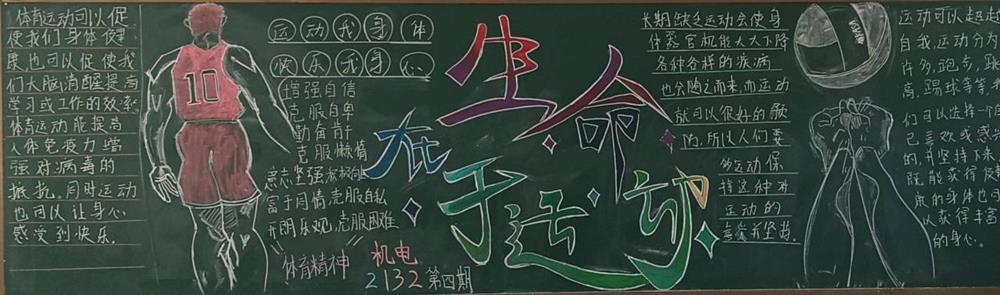 体育运动可以促
使我们身体健
康也可以促使我
们大脑清醒提高
学习或工作的效率
体育运动能提高
人体免疫力增
强对病毒的
抵抗，同时运动
也可以让身心
感受到快乐.
10
运动我身体
快乐我身心
增强自信
克服自卑
勤奋
克服懒惰
意志坚强
富于同情，克服自私
开朗乐观，克服困难
“体育精神”
机电
2132第四期
生命
在于运动
长期缺乏运动会使身
体器官机能大大下降
各种各样的疾病
也会随之而来，而运动
就可以很好的
所以人们要
运动保
持这种对
运动的
并坚持.
运动可以超越
自我，运动分为
许多，跑步，跳
高，踢球等等
们可以选择一个
己喜欢或感
的，并坚持下来
既能获得
康的身体也
以获得丰富
的身心.